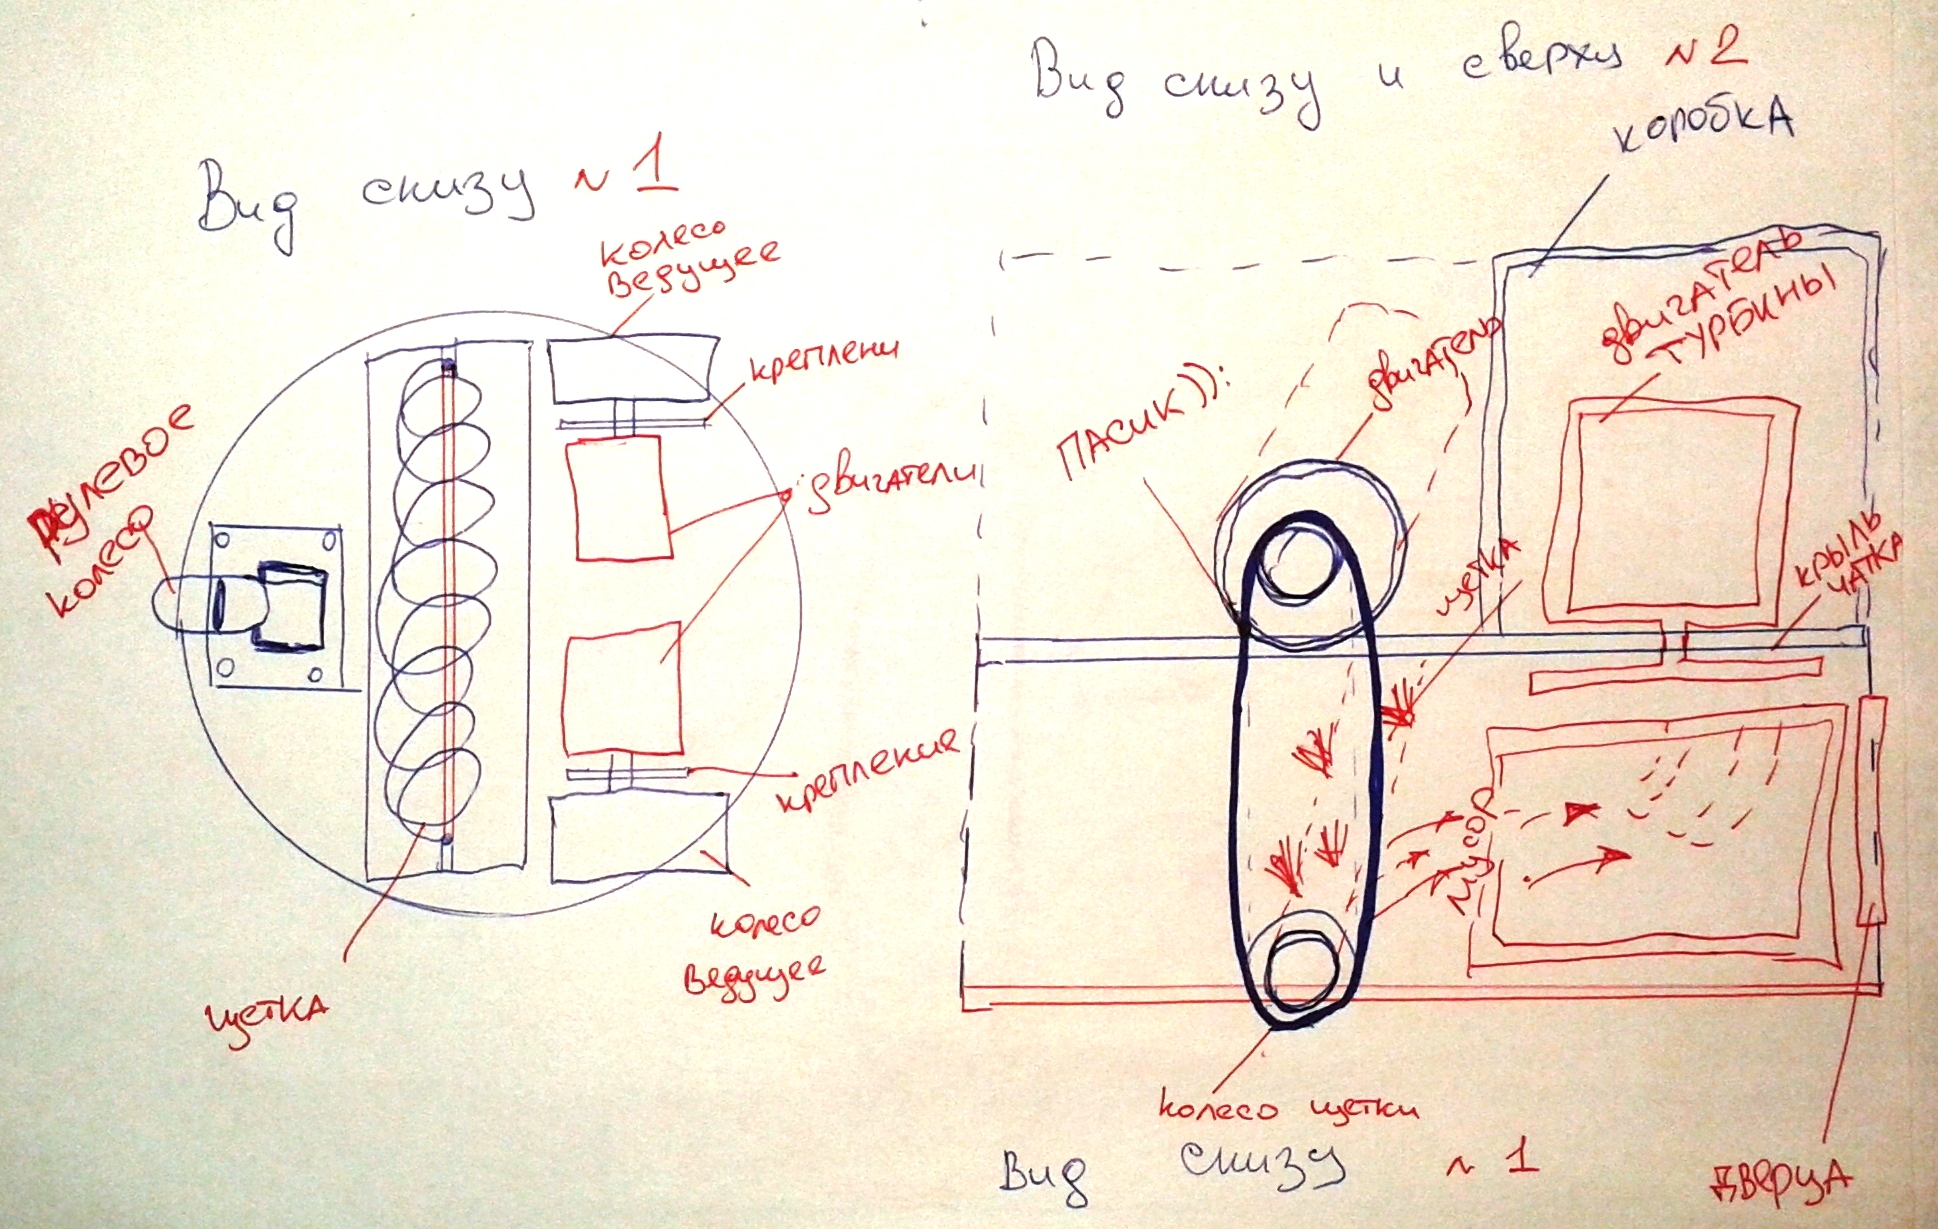 Вид снизу и сверху N2
коробка
Вид снизу N 1
колесо
ведущее
двигатель
турбины
креплени
двигатель
ПАСИК)):
Рулевое
колесо
двигатели
щетка
крыль
чатка
крепление
мусор
колесо
ведущее
щетка
колесо щетки
Вид снизу N 1
дверца